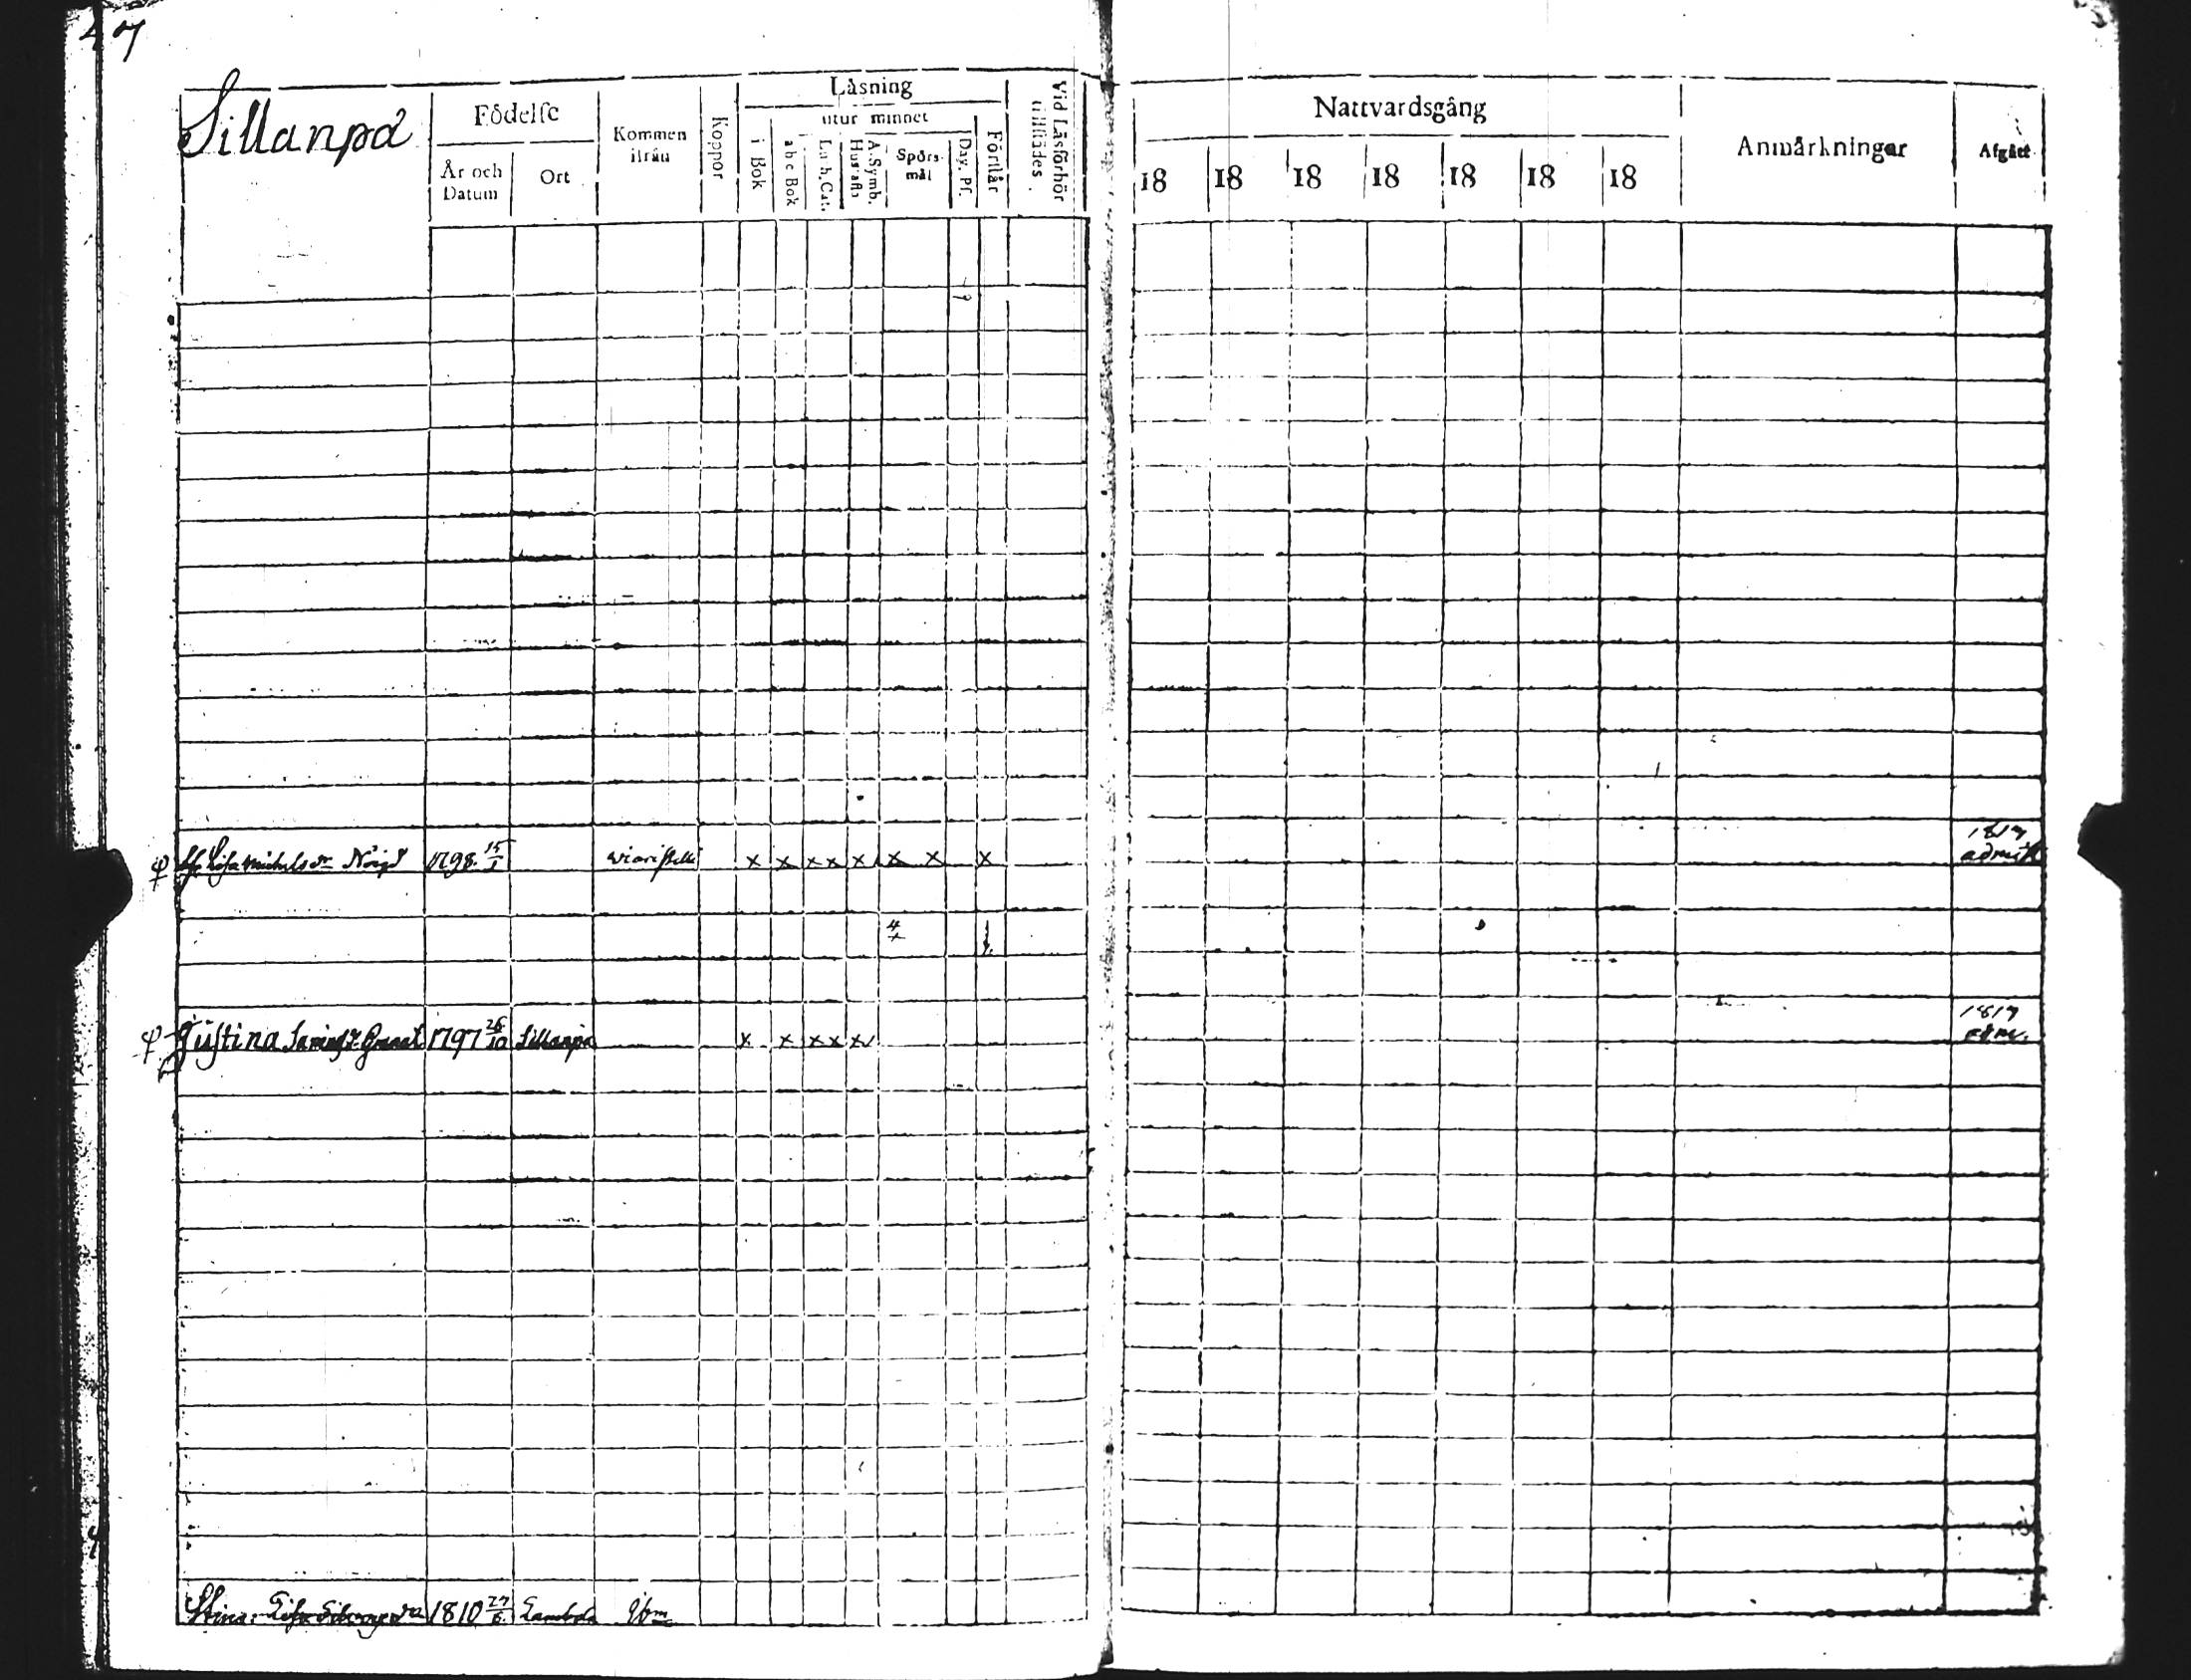 47
Sillanpä
Födelse
År och Datum
Ort
Kommen ifrån
Koppor
Läsning
i Bok
utur minnet
a b c Bok
Luth. Cat.
A. Symb. Hustafla
Spörsmål
Dav. Ps.
Förstår
Vid Läsförhör tillstädes.
Nattvardsgång
18 18 18 18 18 18 18
Anmärkningar
Afgått
Lisa Michelsdr 1798 15/1 x x x x x x x x 1817 admitt
4
Justina 1797 26/10 Sillanpä x x x x x 1817 adm.
Stina Lisa 1810 27/6